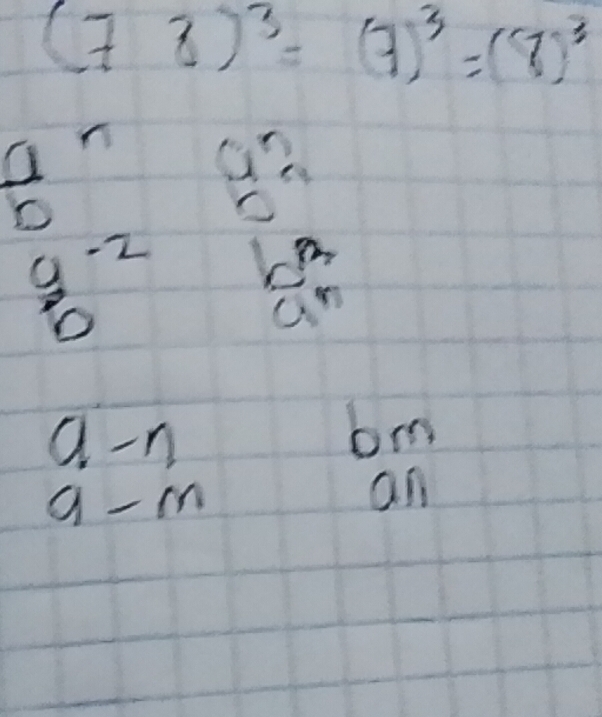 (7 8)³ = (7)³ = (8)³
a ⁿ aⁿ
b bⁿ
a ⁻² bⁿ
b aⁿ
a - n bm
a - m an